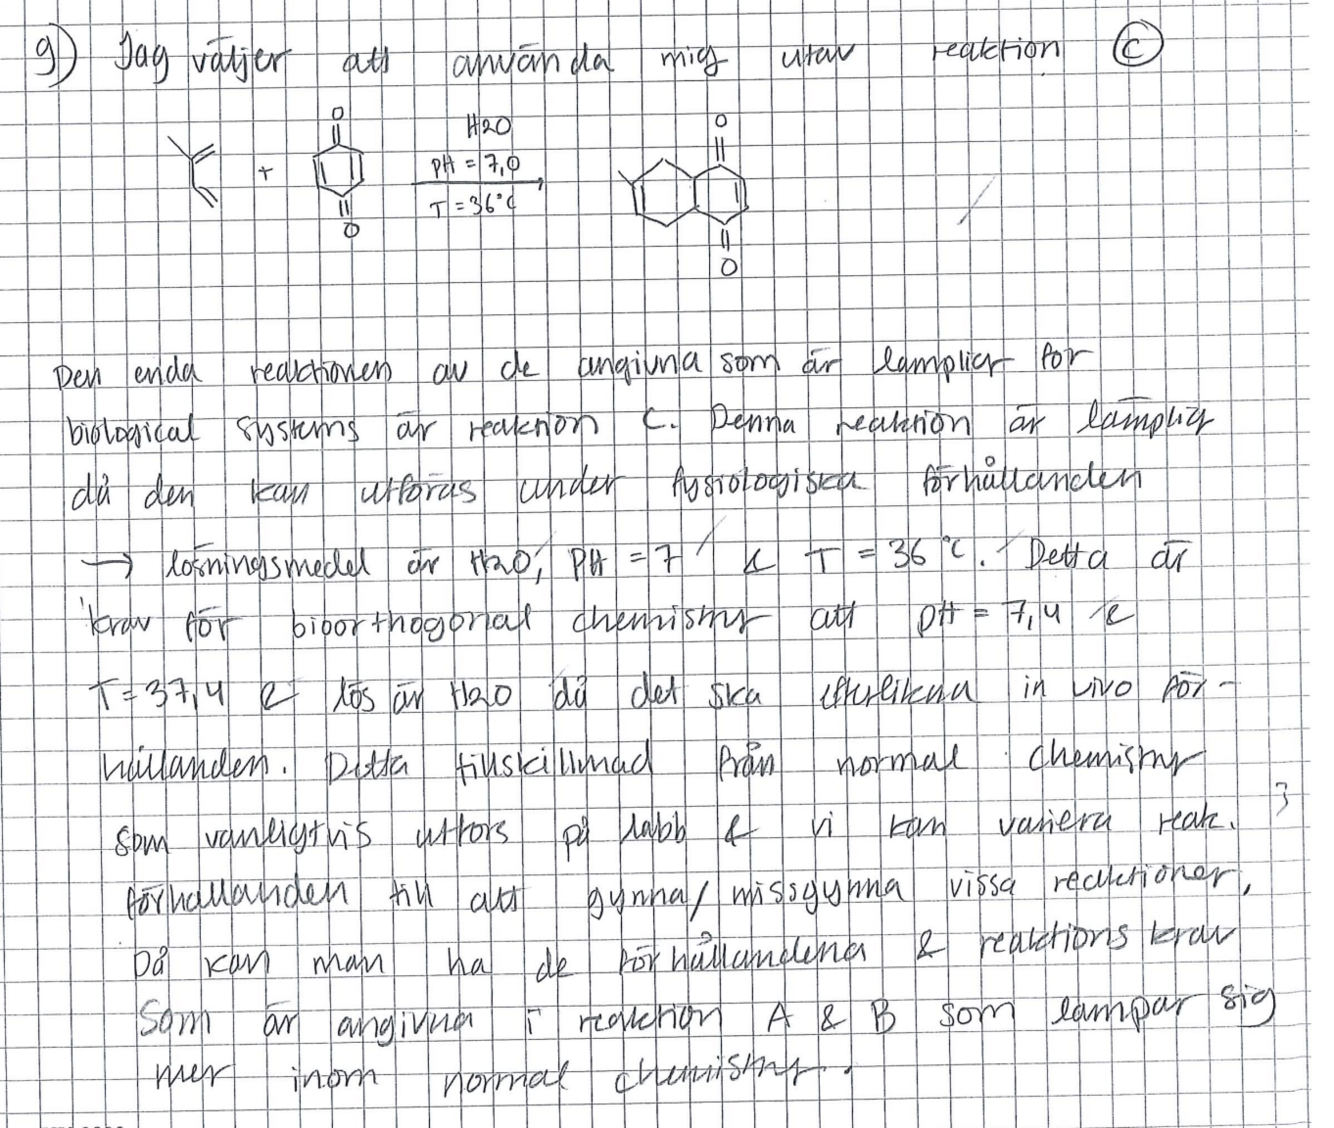 g) Jag väljer att använda mig utav reaktion C
O
O
+
H2O
PH = 7,0
T = 36°C
O
O
Den enda reaktionen av de angivna som är lämplig för
biological systems är reaktion C. Denna reaktion är lämplig
då den kan utföras under fysiologiska förhållanden
→ lösningsmedel är H2O, PH = 7 & T = 36 °C. Detta är
krav för bioorthogonal chemistry att pH = 7,4 &
T = 37,4 & lös är H2O då det ska efterlikna in vivo för-
hållanden. Detta tillskillnad från normal chemistry
som vanligtvis utförs på labb & vi kan variera reak.
förhållanden till att gynna/missgynna vissa reaktioner,
Då kan man ha de förhållandena & reaktions krav
Som är angivna i reaktion A & B som lämpar sig
mer inom normal chemistry.
3